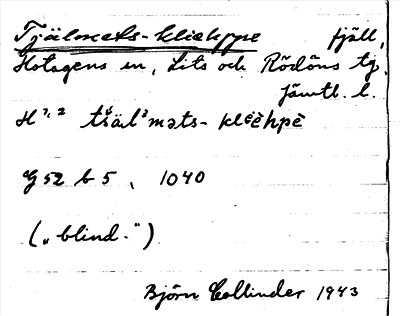 Tjälmets-kliehppe fjäll,
Hotagens sn, Lits och Rödöns tg.
Jämtl. l.
H 1, 2 tšäl²məts-kleèhpè
G 52 b 5, 1040
(„blind.")
Björn Collinder 1943